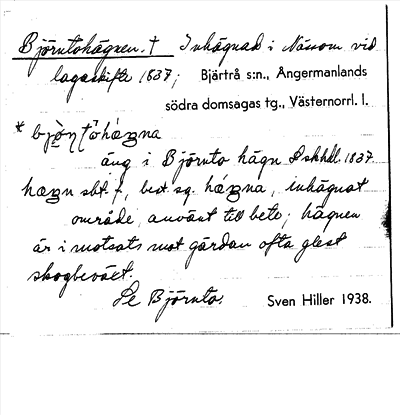 Björntohägnen. † Inhägnad i Nänom vid
lagaskifte 1837; Bjärtrå s:n., Ångermanlands
södra domsagas tg., Västernorrl. l.
äng i Björnto hägn Lskhdl. 1837.
hægn sbt. f., best. sg. hǽgna, inhägnat
område, använt till bete; hägnen
är i motsats mot gärdan ofta glest
skogbeväxt.
Se Björnto. Sven Hiller 1938.